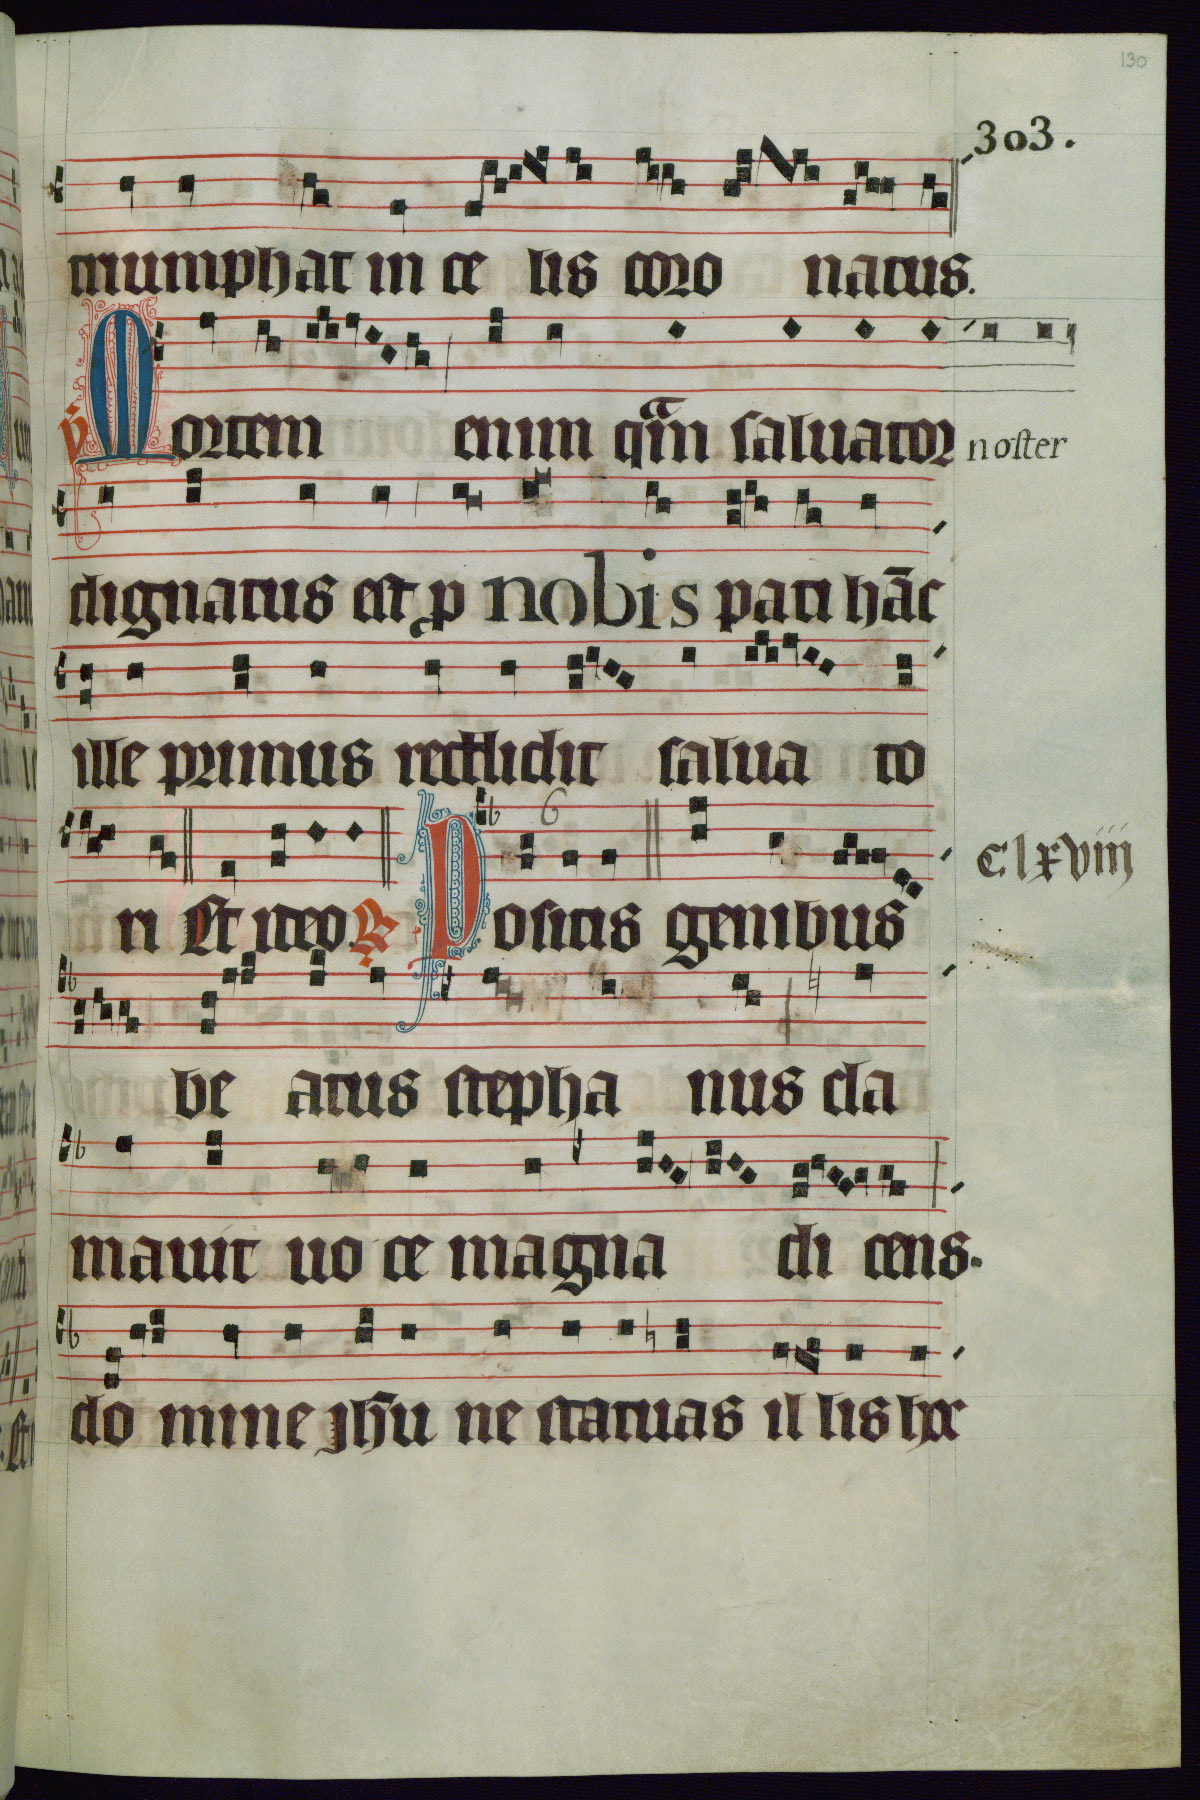 130
303.
triumphat in ce lis coro natus.
℣ Mortem enim qᵃ̄m saluator noster
dignatus est ꝓ nobis pati hāc
ille primus reddidit salua to
6
ri Et ideo. ℟ Positis genibus
C lxviij
be atus stepha nus cla
mauit uo ce magna di cens.
do mine jhū ne statuas il lis hoc